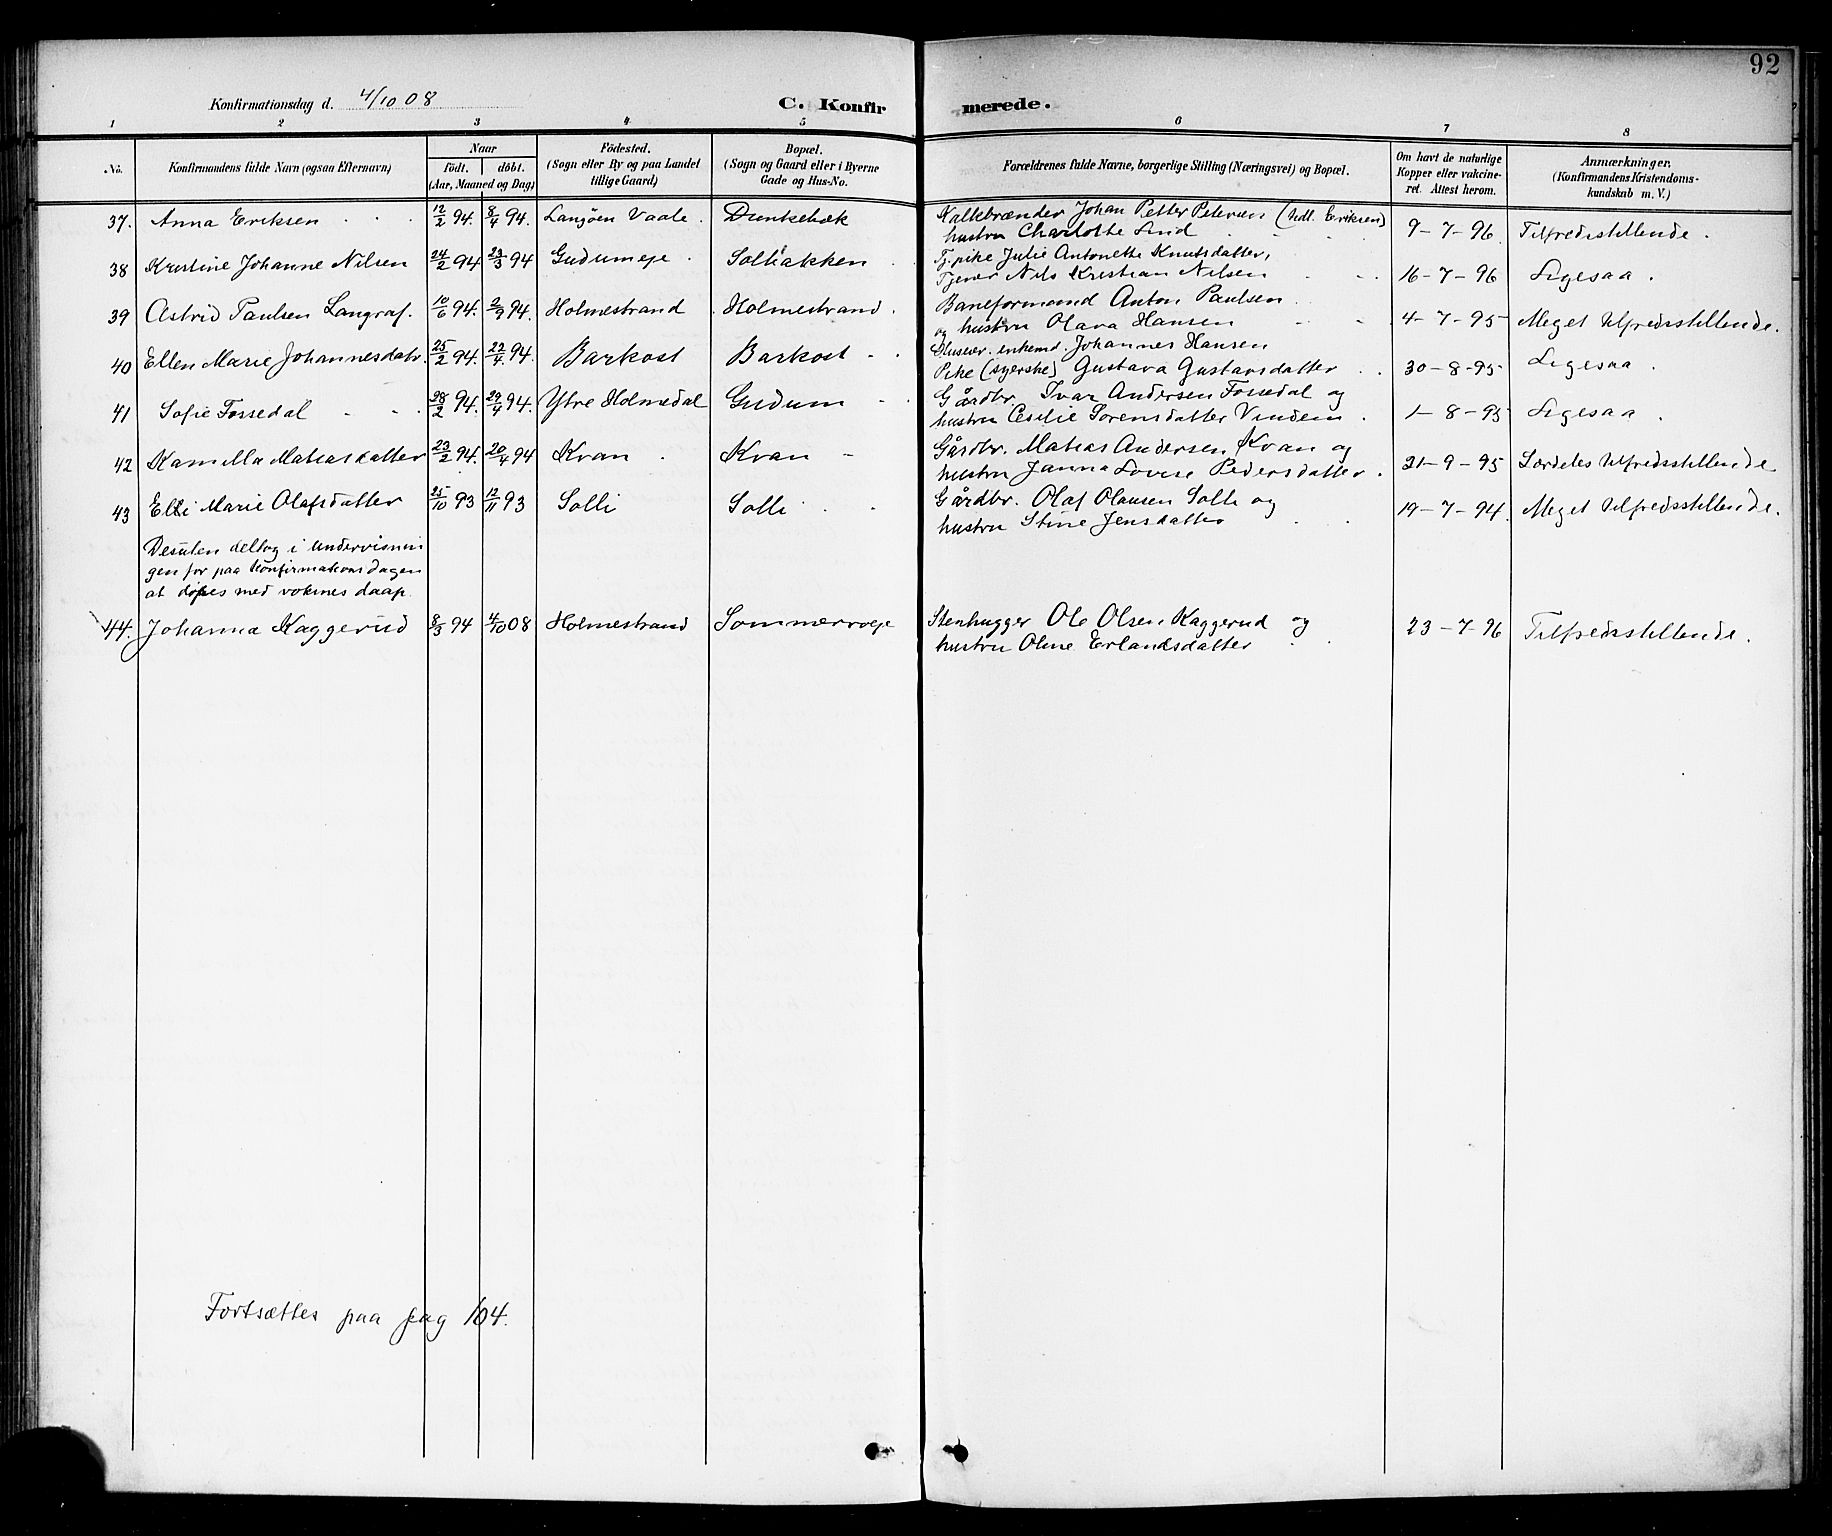 92
Konfirmationsdag d. 4/10 08
C. Konfirmerede.
1 2 3 4 5 6 7 8
No.
Konfirmandens fulde Navn (ogsaa Efternavn)
Naar
Födt. döbt.
(Aar, Maaned og Dag)
Födested.
(Sogn eller By og paa Landet
tillige Gaard)
Bopæl.
(Sogn og Gaard eller i Byerne
Gade og Hus-No.
Forældrenes fulde Navne, borgerlige Stilling (Næringsvei) og Bopæl.
Om havt de naturlige
Kopper eller vakcine-
ret. Attest herom.
Anmærkninger.
(Konfirmandens Kristendoms-
kundskab m. V.)
37. Anna Eriksen 12/2 94. 8/4 94. Langöen Vaale. Dunkebæk
Kalkbrænder Johan Petter Petersen (kdl. Eriksen)
hustru Charlotte Lind
9-7-96 Tilfredsstillende.
38 Kristine Johanne Nilsen 24/2 94 23/3 94 Gudumeje. Solbakken
Tj. pike Julie Antonette Knutsdatter,
Tjener Nils Kristian Nilsen
16-7-96 Ligesaa.
39 Astrid Paulsen Langraf. 10/6 94. 2/9 94. Holmestrand Holmestrand.
Baneformand Anton Paulsen
og hustru Olava Hansen
4-7-95 Meget tilfredsstillende.
40 Ellen Marie Johannesdatr. 25/2 94. 22/4 94. Barkost Barkost
Huseier. enkemd. Johannes Hansen
Pike (syerske) Gustava Gustavsdatter
30-8-95 Ligesaa.
41 Sofie Fossedal 28/2 94. 29/4 94. Ytre Holmedal Gudum
Gårdbr. Ivar Andersen Fossedal og
hustru Cesilie Sorensdatter Vindein
1-8-95 Ligesaa.
42 Kamilla Matiasdatter 23/2 94. 20/4 94 Kvan Kvan
Gårdbr. Matias Andersen Kvan og
hustru Janna Lovise Pedersdatter.
21-9-95 Særdeles tilfredsstillende
43 Elli Marie Olafsdatter 25/10 93 12/11 93 Solli Solli
Gårdbr. Olaf Olausen Solli og
hustru Stine Jensdatter
19-7-94. Meget tilfredsstillende.
Desuten deltog i undervisnin
gen for paa konfirmationsdagen
at döpes med voksnes daap.
44. Johanna Kaggerud 8/3 94 4/10 08 Holmestrand Sommerroeje
Stenhugger Ole Olsen Kaggerud og
hustru Oline Erlandsdatter
23-7-96 Tilfredsstillende.
Fortsættes paa pag 104.